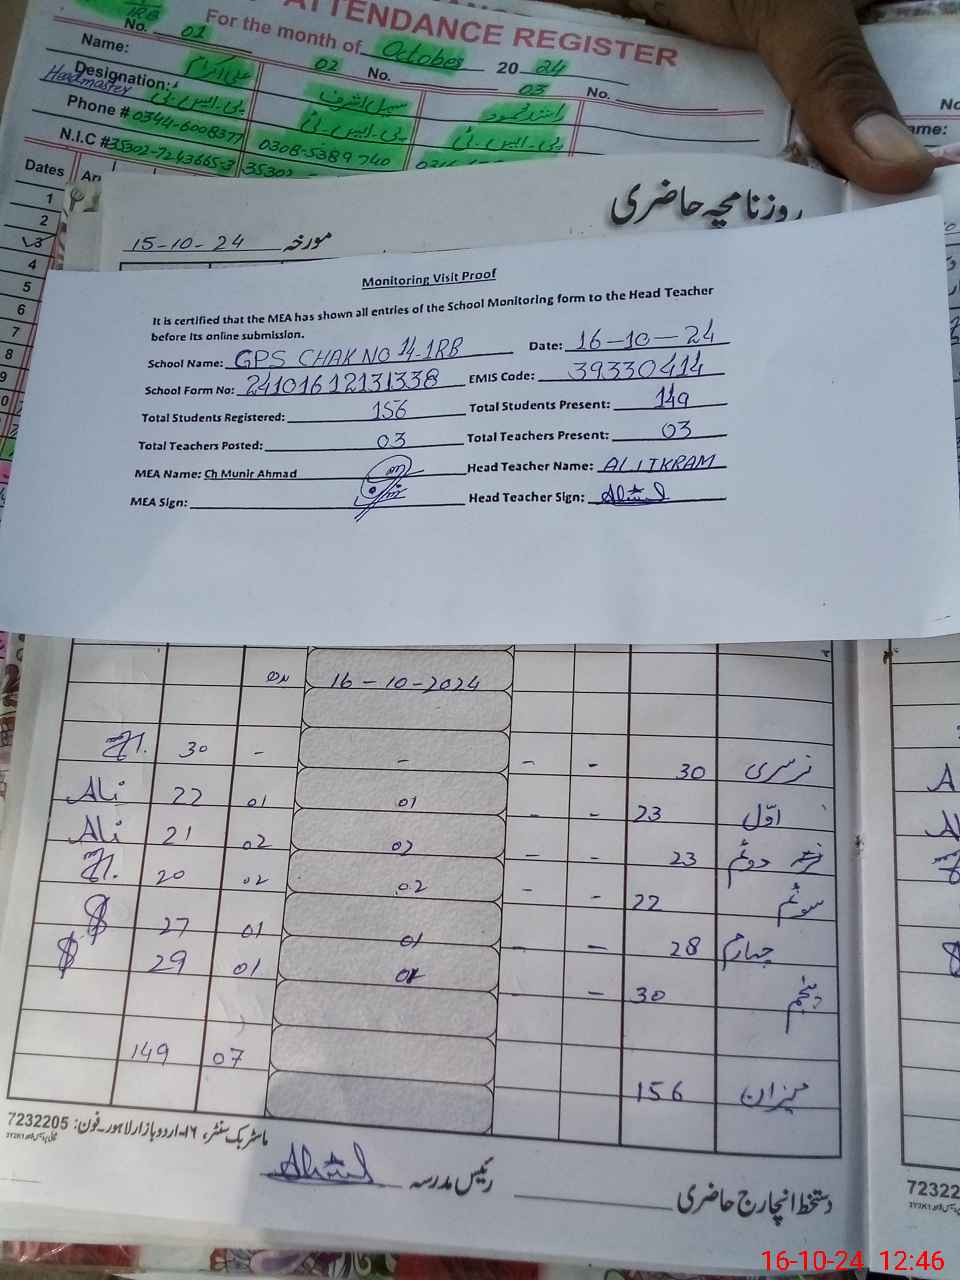 ATTENDANCE REGISTER
For the month of October 2024
No. 01 02 No. 03 No.
Name: علی اکرام سہیل اشرف راشد محمود
Designation: پی.ایس.ٹی پی.ایس.ٹی پی.ایس.ٹی
Headmaster
Phone # 0344-6008377 0308-5389740
N.I.C # 35302-7243665-3 35302
Dates
1
2
3
4
5
6
7
8
9
روزنامچہ حاضری
مورخہ 15-10-24
Monitoring Visit Proof
It is certified that the MEA has shown all entries of the School Monitoring form to the Head Teacher
before its online submission.
School Name: GPS CHAK NO 14-1RB Date: 16-10-24
School Form No: 24101612131338 EMIS Code: 39330414
Total Students Registered: 156 Total Students Present: 149
Total Teachers Posted: 03 Total Teachers Present: 03
MEA Name: Ch Munir Ahmad Head Teacher Name: ALI IKRAM
MEA Sign: Head Teacher Sign:
16-10-2024 بدھ
نرسری 30 - - - - 30
اوّل 23 - - 01 01 22 Ali
دوئم 23 - - 02 02 21 Ali
سوئم 22 - - 02 02 20
چہارم 28 - - 01 01 27
پنجم 30 - - 01 01 29
میزان 156 07 149
ماسٹر بک سنٹر، ۱۶-اردو بازار لاہور۔ فون: 7232205
دستخط انچارج حاضری رئیس مدرسہ
72322
16-10-24 12:46